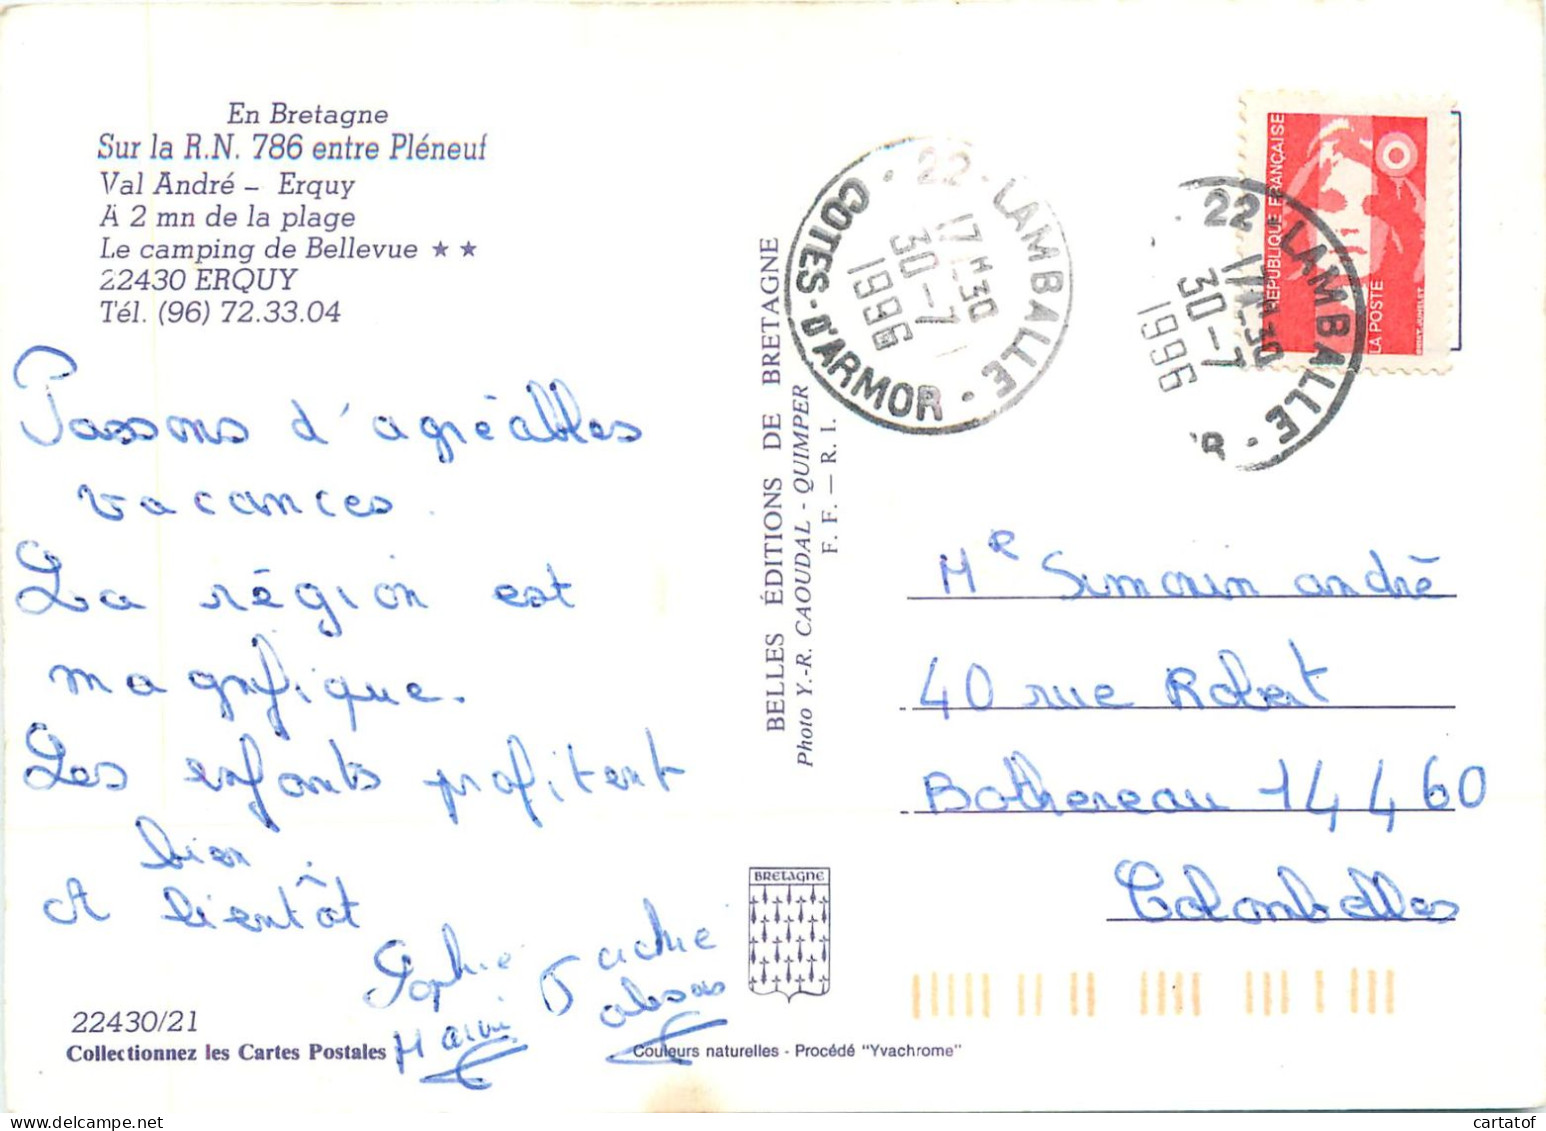 En Bretagne
Sur la R.N. 786 entre Pléneuf
Val André - Erquy
À 2 mn de la plage
Le camping de Bellevue ★ ★
22430 ERQUY
Tél. (96) 72.33.04
Passons d'agréables
vacances.
La région est
magnifique.
Les enfants profitent
bien.
A bientôt
Sophie
22430/21
Collectionnez les Cartes Postales
BELLES ÉDITIONS DE BRETAGNE
Photo Y.-R. CAOUDAL - QUIMPER
F. F. — R. I.
BRETAGNE
Couleurs naturelles - Procédé "Yvachrome"
22 - LAMBALLE - COTES-D'ARMOR
17H30
30-7
1996
22 LAMBALLE - R
17H30
30-7
1996
REPUBLIQUE FRANÇAISE
LA POSTE
Mr Simouin andré
40 rue Robert
Bothereau 14460
Colombelles
cartatof